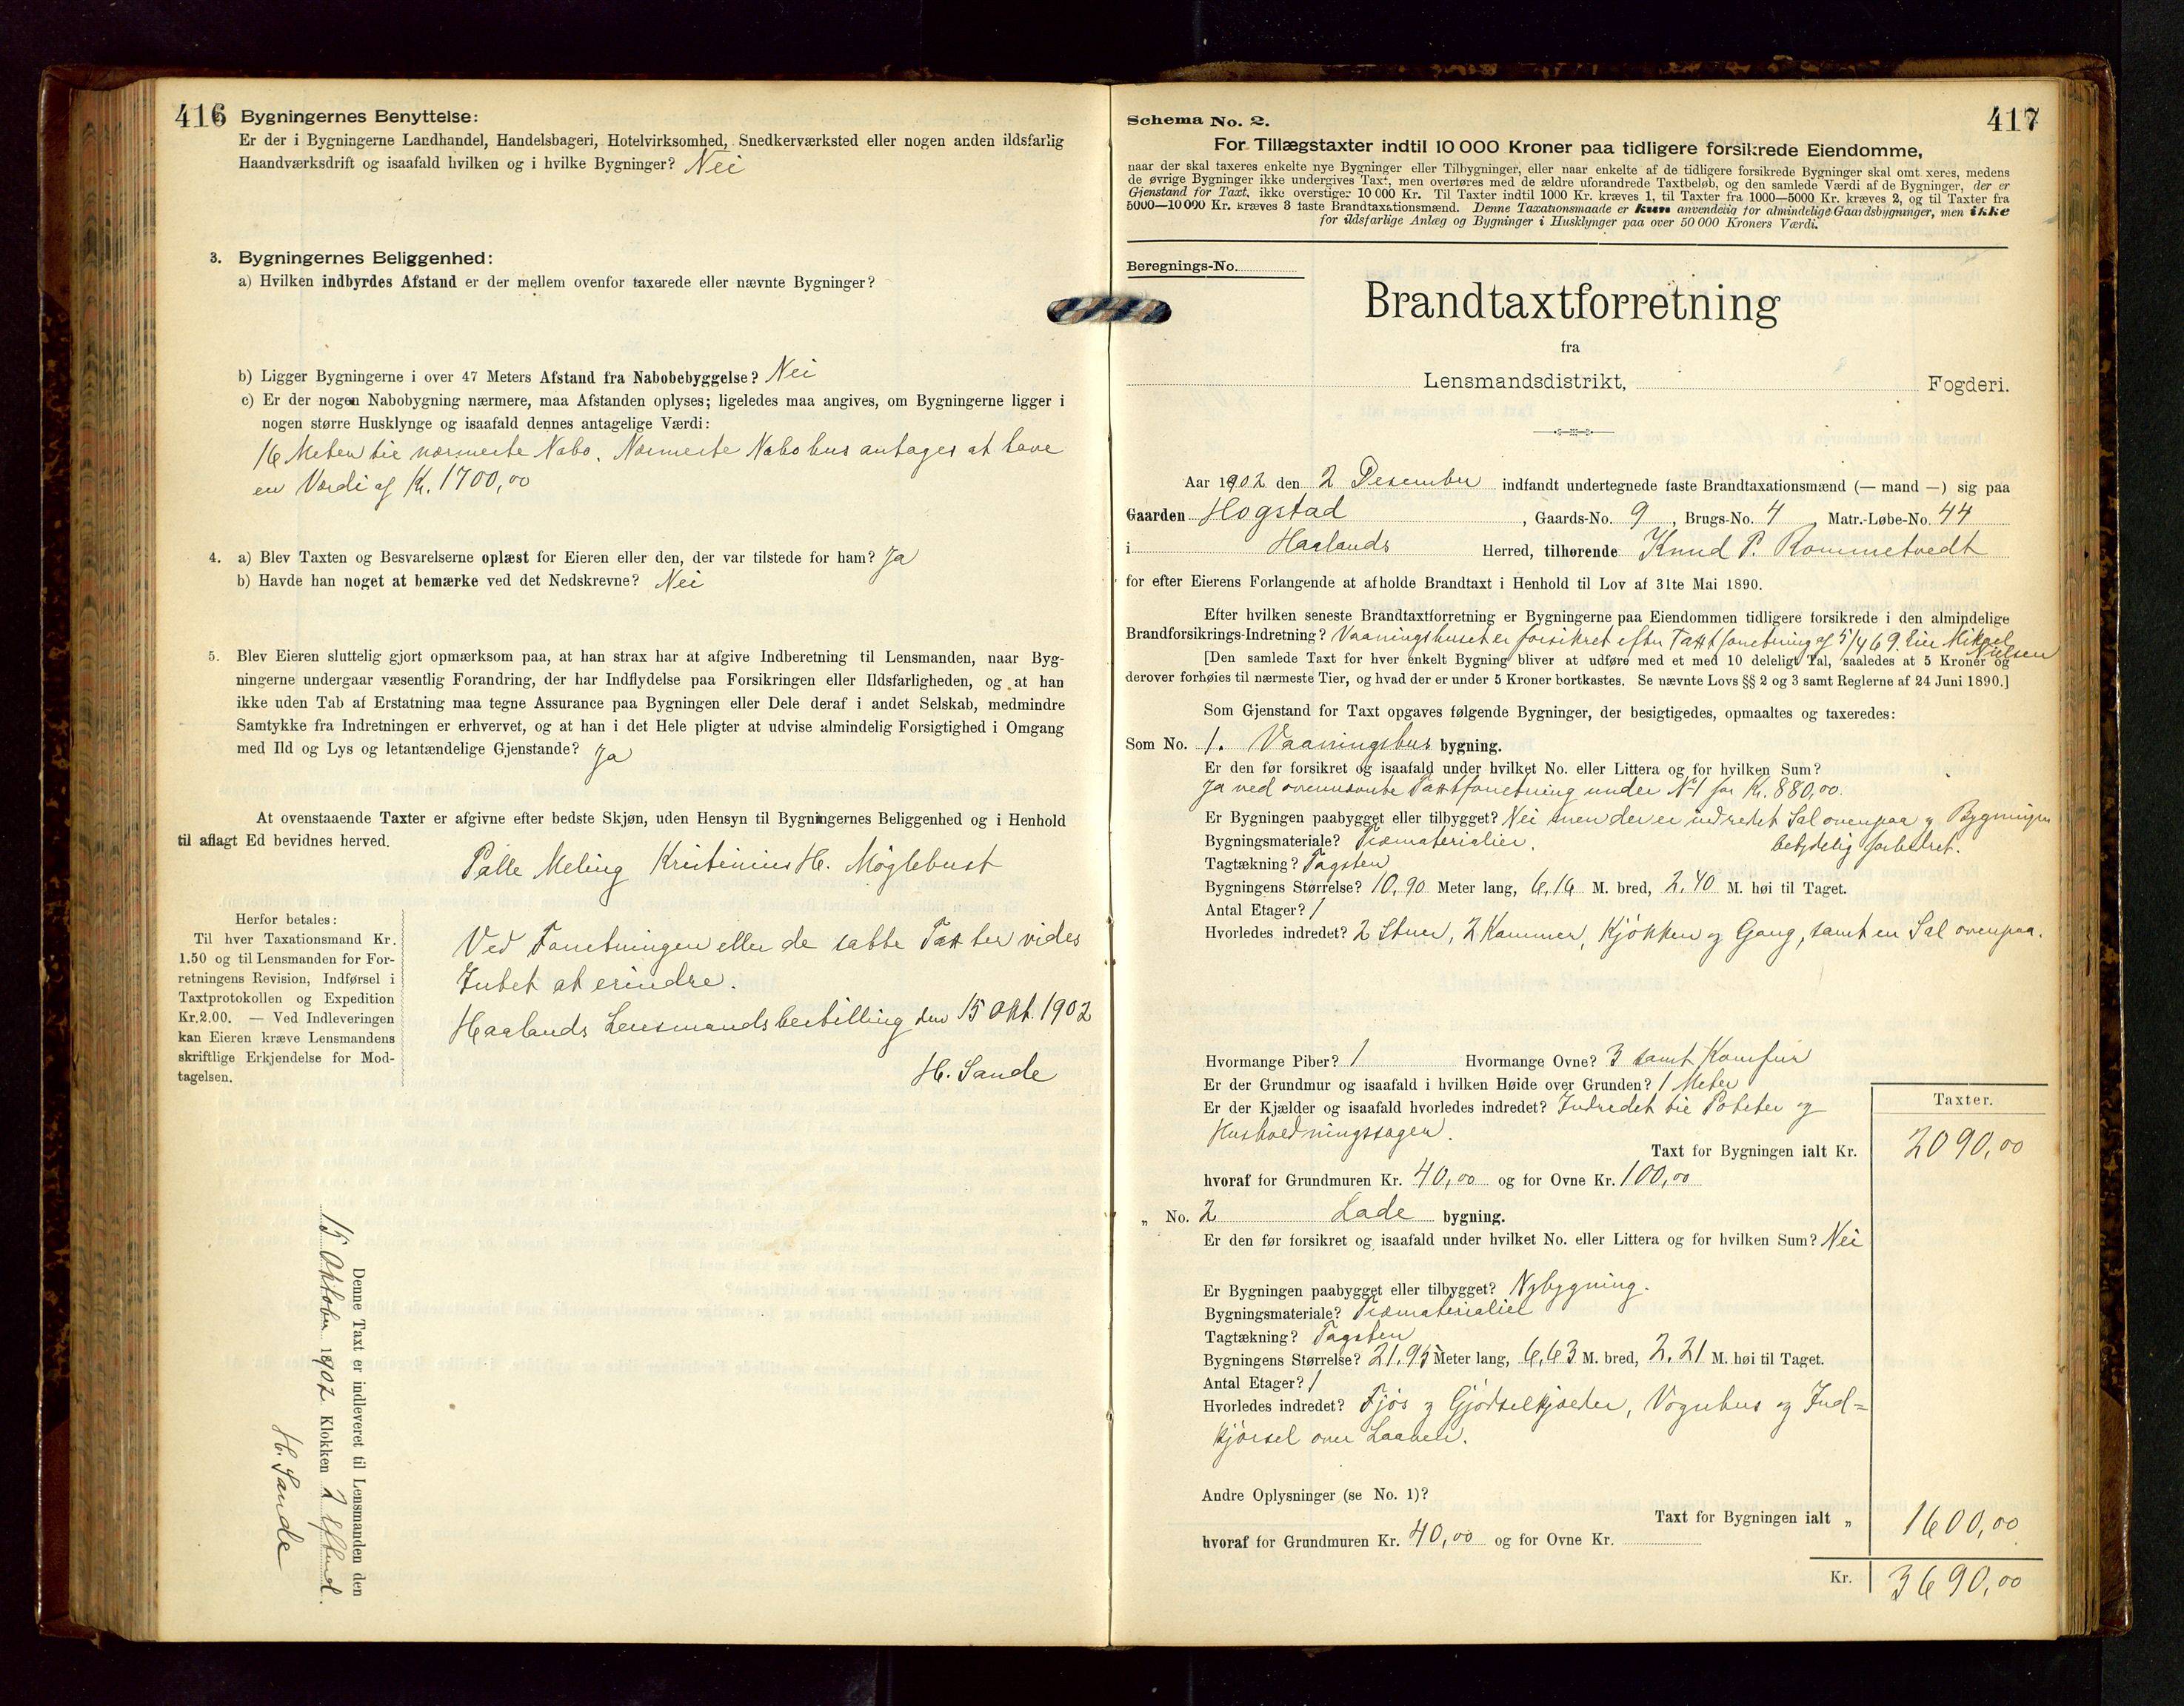 416
Bygningernes Benyttelse:
Er der i Bygningerne Landhandel, Handelsbageri, Hotelvirksomhed, Snedkerværksted eller nogen anden ildsfarlig
Haandværksdrift og isaafald hvilken og i hvilke Bygninger? Nei
3. Bygningernes Beliggenhed:
a) Hvilken indbyrdes Afstand er der mellem ovenfor taxerede eller nævnte Bygninger?
b) Ligger Bygningerne i over 47 Meters Afstand fra Nabobebyggelse? Nei
c) Er der nogen Nabobygning nærmere, maa Afstanden oplyses; ligeledes maa angives, om Bygningerne ligger i
nogen større Husklynge og isaafald dennes antagelige Værdi:
16 Meter til nærmeste Nabo. Nærmeste Nabohus antages at have
en Værdi af Kr. 1700,00
4. a) Blev Taxten og Besvarelserne oplæst for Eieren eller den, der var tilstede for ham? Ja
b) Havde han noget at bemærke ved det Nedskrevne? Nei
5. Blev Eieren sluttelig gjort opmærksom paa, at han strax har at afgive Indberetning til Lensmanden, naar Byg-
ningerne undergaar væsentlig Forandring, der har Indflydelse paa Forsikringen eller Ildsfarligheden, og at han
ikke uden Tab af Erstatning maa tegne Assurance paa Bygningen eller Dele deraf i andet Selskab, medmindre
Samtykke fra Indretningen er erhvervet, og at han i det Hele pligter at udvise almindelig Forsigtighed i Omgang
med Ild og Lys og letantændelige Gjenstande? Ja
At ovenstaaende Taxter er afgivne efter bedste Skjøn, uden Hensyn til Bygningernes Beliggenhed og i Henhold
til aflagt Ed bevidnes herved.
Palle Meling Kristinius H. Møglebust
Herfor betales:
Til hver Taxationsmand Kr.
1.50 og til Lensmanden for For-
retningens Revision, Indførsel i
Taxtprotokollen og Expedition
Kr.2.00. — Ved Indleveringen
kan Eieren kræve Lensmandens
skriftlige Erkjendelse for Mod-
tagelsen.
Ved Forretningen eller de satte Taxter vides
Intet at erindre.
Haalands Lensmandsbestilling den 15 Okt. 1902
H. Sande
Denne Taxt er indleveret til Lensmanden den
15 Oktober 1902 Klokken 2 Eftmd.
H. Sande
417
Schema No. 2.
For Tillægstaxter indtil 10 000 Kroner paa tidligere forsikrede Eiendomme,
naar der skal taxeres enkelte nye Bygninger eller Tilbygninger, eller naar enkelte af de tidligere forsikrede Bygninger skal omt xeres, medens
de øvrige Bygninger ikke undergives Taxt, men overføres med de ældre uforandrede Taxtbeløb, og den samlede Værdi af de Bygninger, der er
Gjenstand for Taxt, ikke overstiger 10 000 Kr. Til Taxter indtil 1000 Kr. kræves 1, til Taxter fra 1000—5000 Kr. kræves 2, og til Taxter fra
5000—10 000 Kr. kræves 3 faste Brandtaxationsmænd. Denne Taxationsmaade er kun anvendelig for almindelige Gaardsbygninger, men ikke
for ildsfarlige Anlæg og Bygninger i Husklynger paa over 50 000 Kroners Værdi.
Beregnings-No.
Brandtaxtforretning
fra
Lensmandsdistrikt, Fogderi.
Aar 1902 den 2 Desember indfandt undertegnede faste Brandtaxationsmænd (— mand —) sig paa
Gaarden Hogstad, Gaards-No. 9, Brugs-No. 4, Matr.-Løbe-No. 44
i Haalands Herred, tilhørende Knud P. Rommetvedt
for efter Eierens Forlangende at afholde Brandtaxt i Henhold til Lov af 31te Mai 1890.
Efter hvilken seneste Brandtaxtforretning er Bygningerne paa Eiendommen tidligere forsikrede i den almindelige
Brandforsikrings-Indretning? Vaaningshuset er forsikret efter Taxtforretning af 5/4 69. Eier Mikael Nielsen
[Den samlede Taxt for hver enkelt Bygning bliver at udføre med et med 10 deleligt Tal, saaledes at 5 Kroner og
derover forhøies til nærmeste Tier, og hvad der er under 5 Kroner bortkastes. Se nævnte Lovs §§ 2 og 3 samt Reglerne af 24 Juni 1890.]
Som Gjenstand for Taxt opgaves følgende Bygninger, der besigtigedes, opmaaltes og taxeredes:
Som No. 1. Vaaningshus bygning.
Er den før forsikret og isaafald under hvilket No. eller Littera og for hvilken Sum?
Ja ved ovennævnte Taxtforretning under No 1 for Kr. 880,00.
Er Bygningen paabygget eller tilbygget? Nei men der er indredet Sal ovenpaa og Bygningen
betydelig forbedret.
Bygningsmateriale? Træmaterialier.
Tagtækning? Tagsten
Bygningens Størrelse? 10,90 Meter lang, 6,16 M. bred, 2,40 M. høi til Taget.
Antal Etager? 1
Hvorledes indredet? 2 Stuer, 2 Kammer, Kjøkken og Gang, samt en Sal ovenpaa.
Hvormange Piber? 1 Hvormange Ovne? 3 samt Komfur
Er der Grundmur og isaafald i hvilken Høide over Grunden? 1 Meter
Er der Kjælder og isaafald hvorledes indredet? Indredet til Poteter og
Husholdningssager.
Taxter.
Taxt for Bygningen ialt Kr. 2090,00
hvoraf for Grundmuren Kr. 40,00 og for Ovne Kr. 100,00
„ No. 2 Lade bygning.
Er den før forsikret og isaafald under hvilket No. eller Littera og for hvilken Sum? Nei
Er Bygningen paabygget eller tilbygget? Nybygning.
Bygningsmateriale? Træmaterialier
Tagtækning? Tagsten
Bygningens Størrelse? 21,95 Meter lang, 6,63 M. bred, 2,21 M. høi til Taget.
Antal Etager? 1
Hvorledes indredet? Fjøs og Gjødselkjælder, Vognhus og Ind=
kjørsel over Laaven.
Andre Oplysninger (se No. 1)?
Taxt for Bygningen ialt „ 1600,00
hvoraf for Grundmuren Kr. 40,00 og for Ovne Kr.
Kr. 3690,00